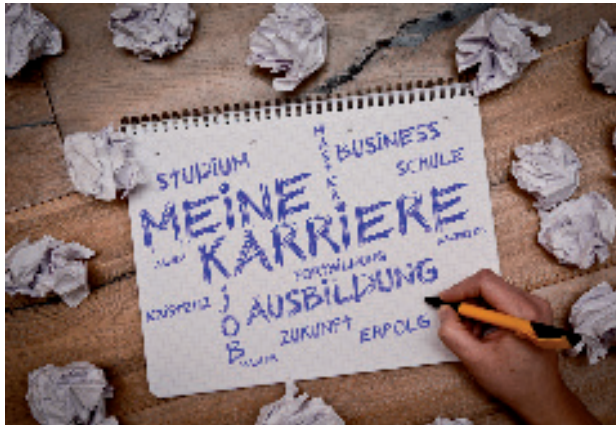 STUDIUM
BUSINESS
SCHULE
MEiNE
KARRiERE
FORTBILDUNG
JOB
AUSBiLDUNG
ZUKUNFT
ERFOLG